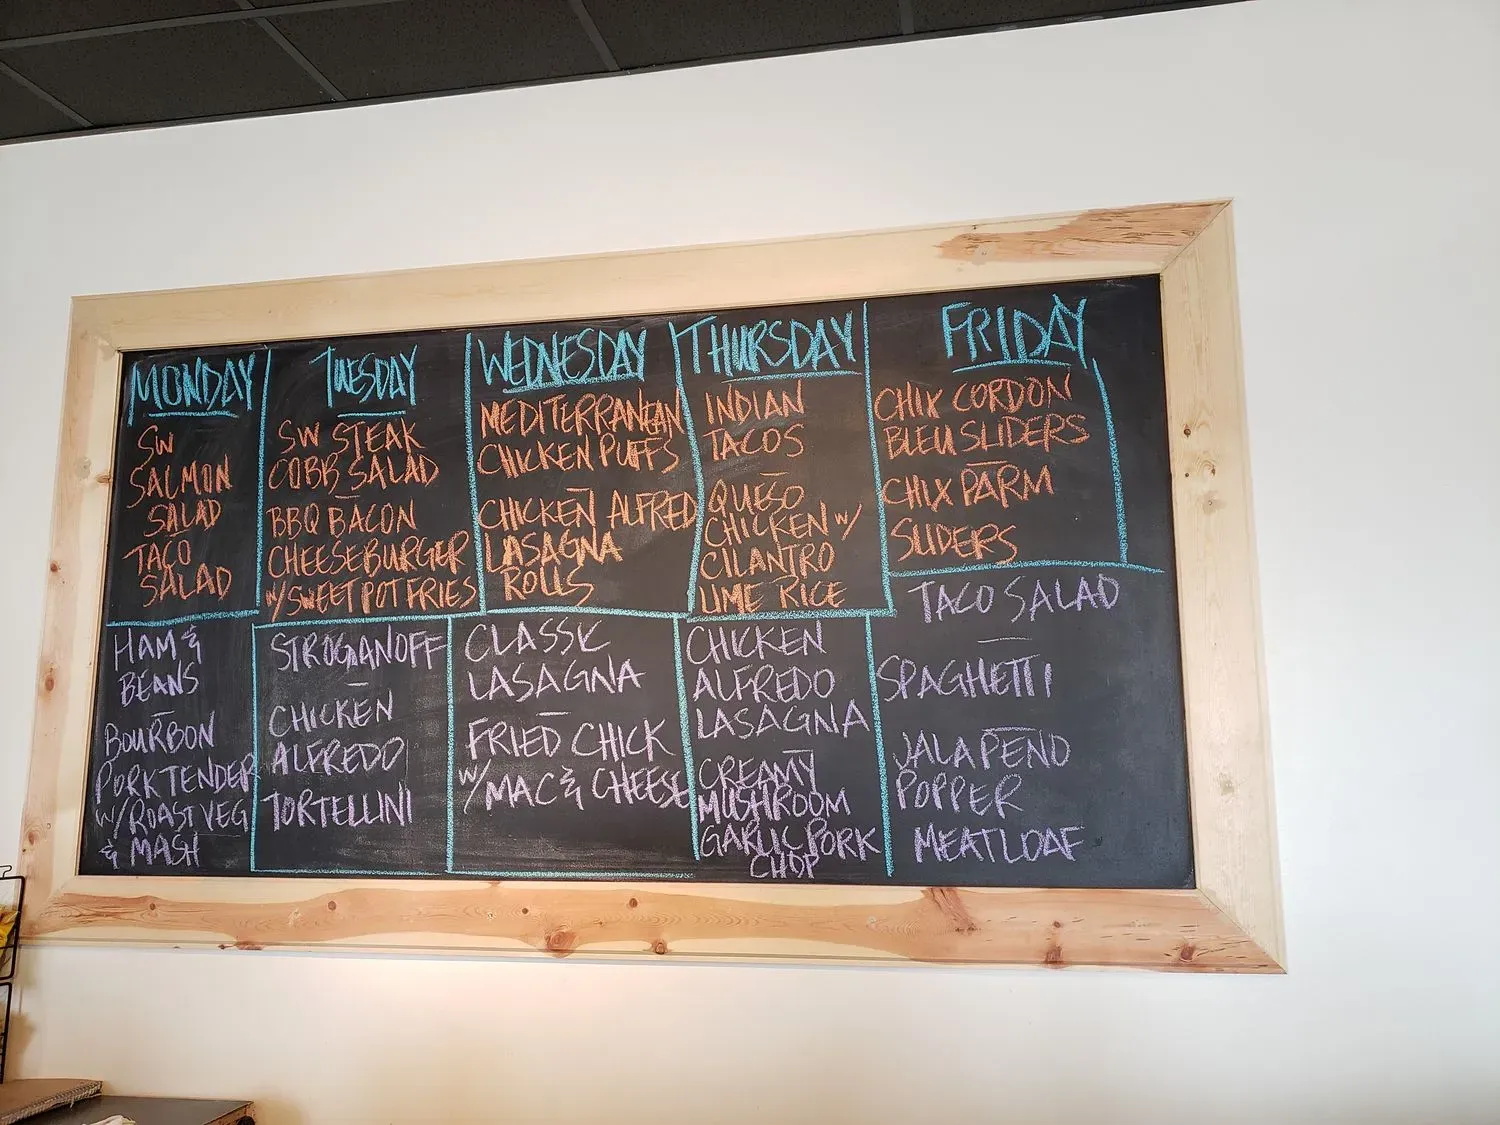 MONDAY
SW
SALMON
SALAD
TACO
SALAD
HAM &
BEANS
BOURBON
PORK TENDER
W/ROAST VEG
& MASH
TUESDAY
SW STEAK
COBB SALAD
BBQ BACON
CHEESEBURGER
W/SWEET POT FRIES
STROGANOFF
CHICKEN
ALFREDO
TORTELLINI
WEDNESDAY
MEDITERRANEAN
CHICKEN PUFFS
CHICKEN ALFREDO
LASAGNA
ROLLS
CLASSIC
LASAGNA
FRIED CHICK
W/MAC & CHEESE
THURSDAY
INDIAN
TACOS
QUESO
CHICKEN W/
CILANTRO
LIME RICE
CHICKEN
ALFREDO
LASAGNA
CREAMY
MUSHROOM
GARLIC PORK
CHOP
FRIDAY
CHIX CORDON
BLEU SLIDERS
CHIX PARM
SLIDERS
TACO SALAD
SPAGHETTI
JALAPEÑO
POPPER
MEATLOAF